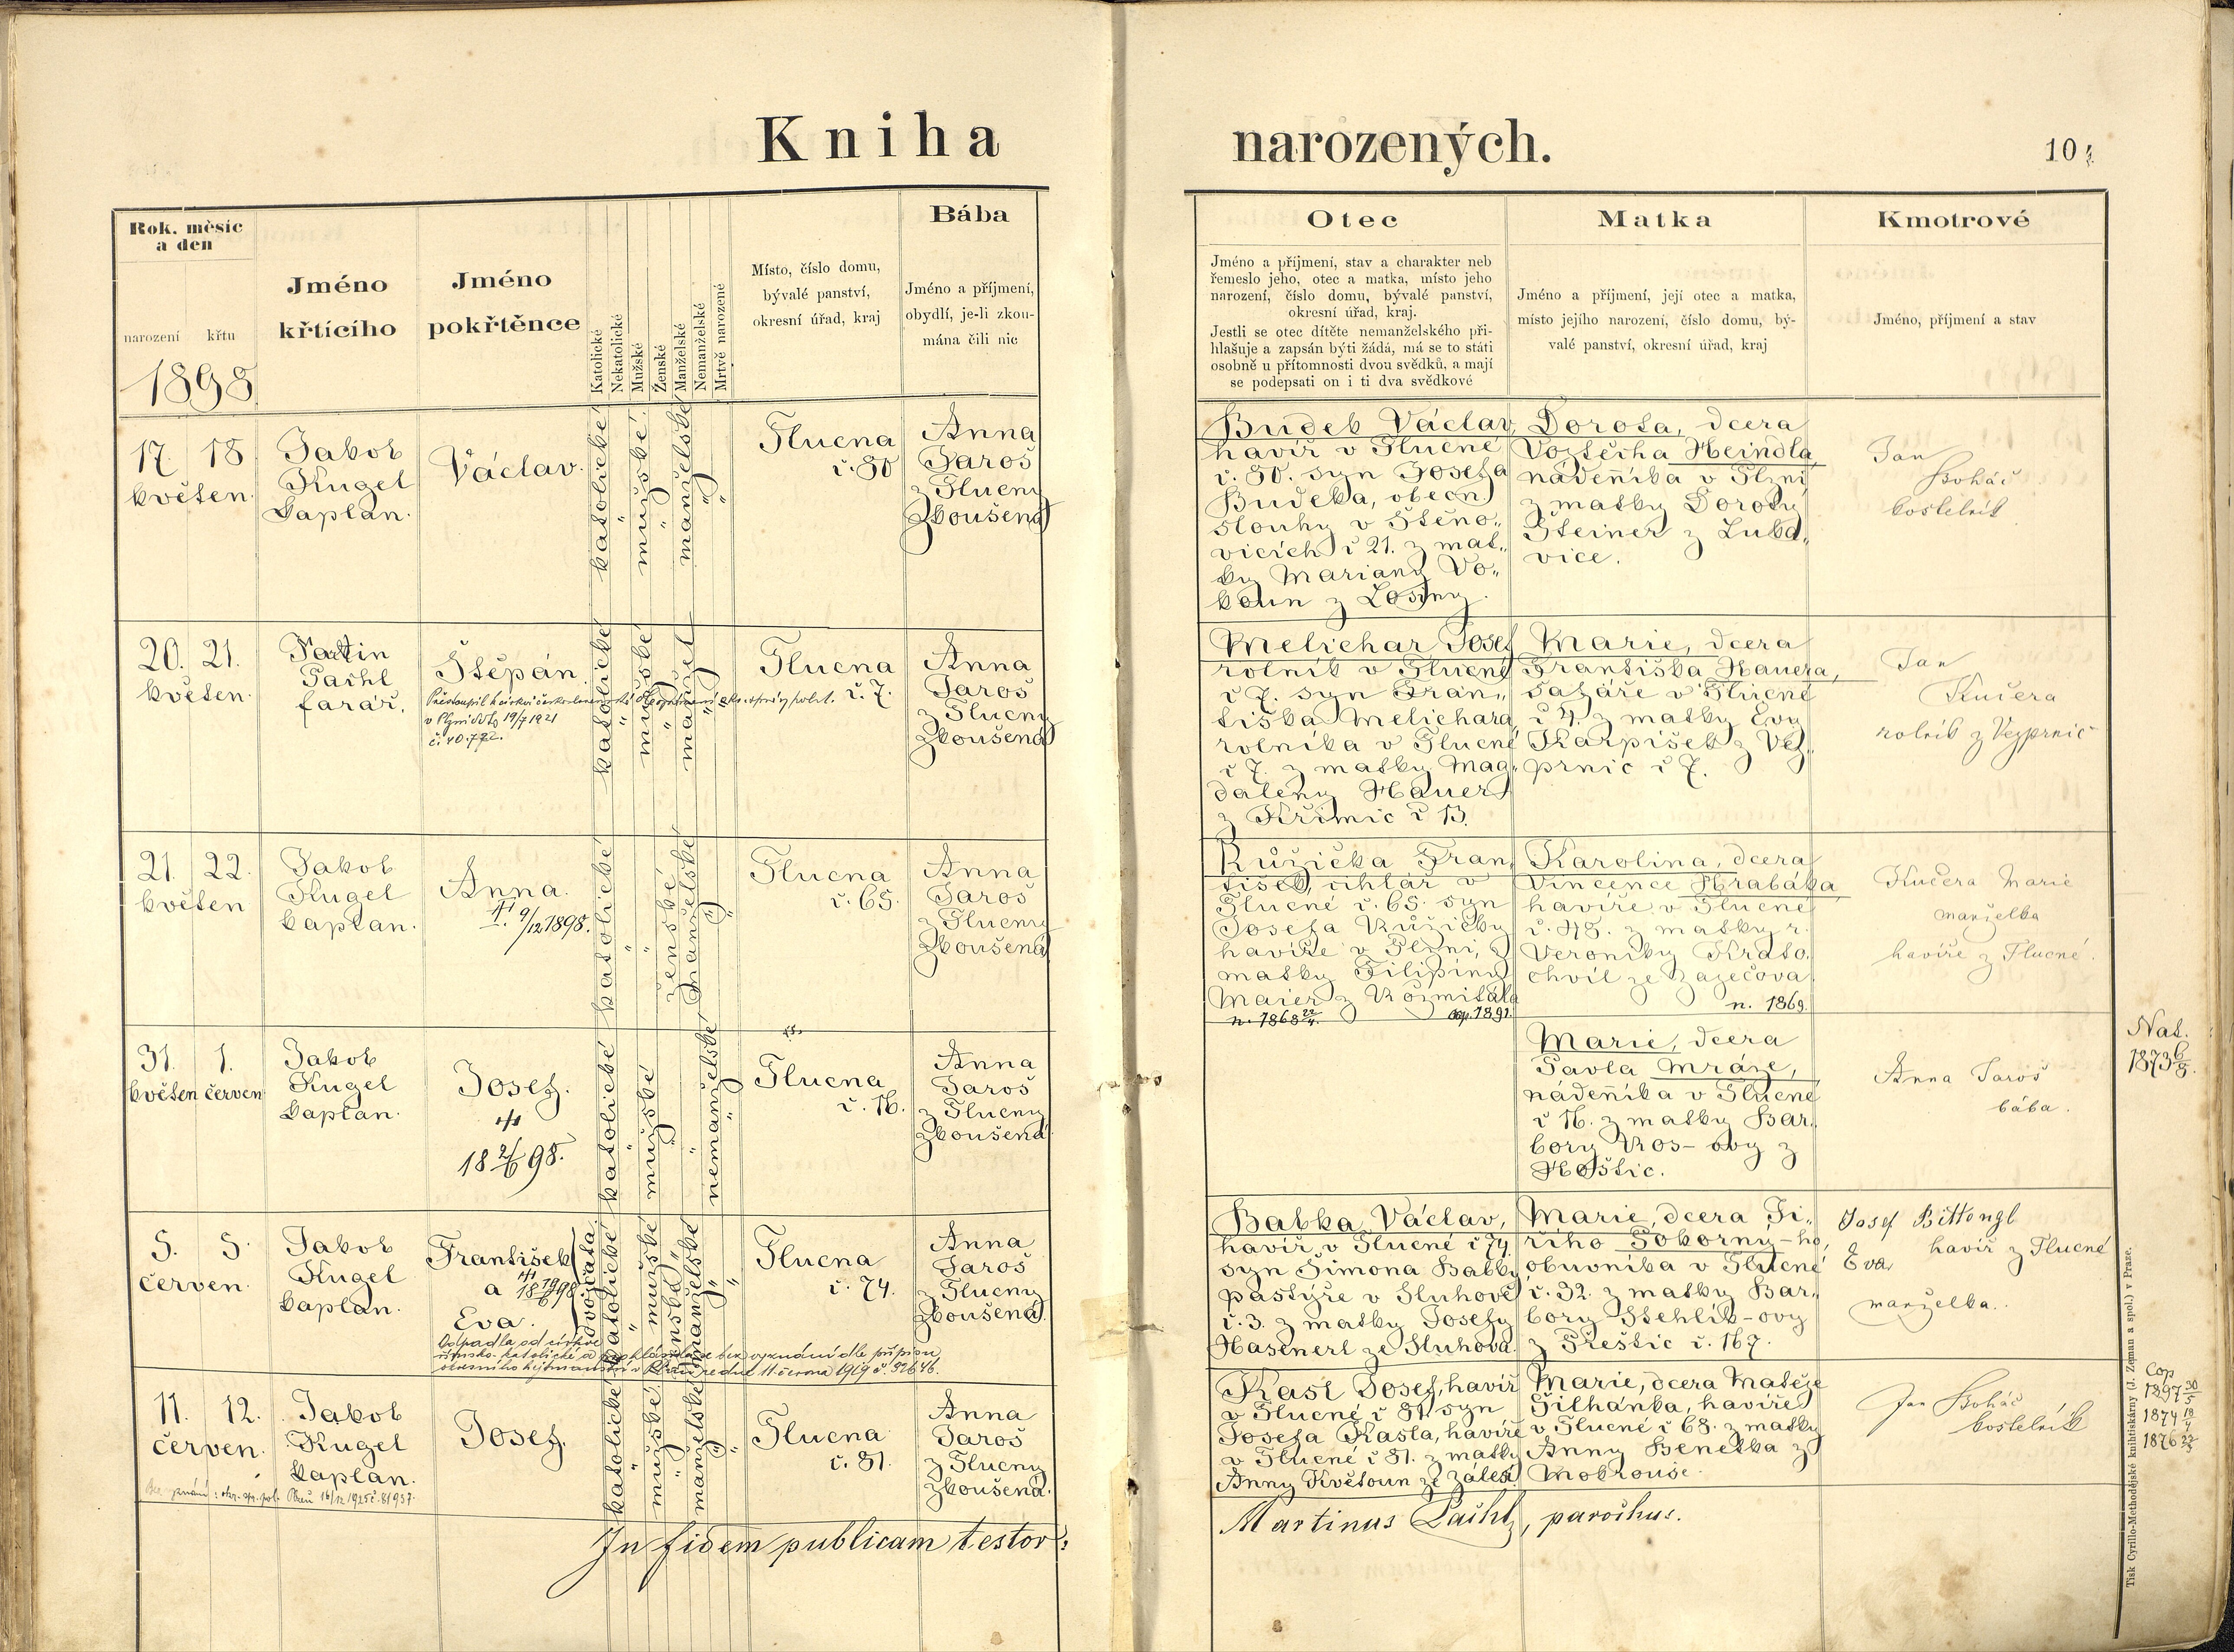 Kniha narozených.
10
Rok, měsíc
a den
narození křtu
1898
Jméno
křtícího
Jméno
pokřtěnce
Katolické
Nekatolické
Mužské
Ženské
Manželské
Nemanželské
Mrtvě narozené
Místo, číslo domu,
bývalé panství,
okresní úřad, kraj
Bába
Jméno a příjmení,
obydlí, je-li zkou-
mána čili nic
Otec
Jméno a příjmení, stav a charakter neb
řemeslo jeho, otec a matka, místo jeho
narození, číslo domu, bývalé panství,
okresní úřad, kraj.
Jestli se otec dítěte nemanželského při-
hlašuje a zapsán býti žádá, má se to státi
osobně u přítomnosti dvou svědků, a mají
se podepsati on i ti dva svědkové
Matka
Jméno a příjmení, její otec a matka,
místo jejího narození, číslo domu, bý-
valé panství, okresní úřad, kraj
Kmotrové
Jméno, příjmení a stav
17. 18
květen.
Jakob
Kugel
kaplan.
Václav.
katolické
mužské
manželské
Tlucna
č. 80
Anna
Jaroš
z Tlucny
Zkoušená
Budek Václav,
havíř v Tlucné
č. 80. syn Josefa
Budeka, obecn.
slouhy v Štěno„
vicích č 21. z mat„
ky Mariany Vo„
koun z Losiny.
Dorota, dcera
Vojtěcha Heindla,
nádenníka v Plzni
z matky Doroty
Steiner z Lukd„
vice.
Jan
Boháč
kostelník
20. 21.
květen.
Martin
Pachl
farář.
Štěpán.
v Plzni 19/7 1921
č. 40.772.
katolické
mužské
manžel.
Tlucna
č. 7.
Anna
Jaroš
z Tlucny
Zkoušená
Melichar Josef
rolník v Tlucné
č 7. syn Fran„
tiška Melichara,
rolníka v Tlucné
č 7. z matky Mag„
daleny Hauer
z Křimic č 13.
Marie, dcera
Františka Hauera,
sadaře v Tlucné
č 4. z matky Evy
Karpíšek z Vej„
prnic č 7.
Jan
Kučera
rolník z Vejprnic
21. 22.
květen
Jakob
Kugel
kaplan.
Anna.
9/12 1898.
katolické
ženské
manželské
Tlucna
č. 65.
Anna
Jaroš
z Tlucny
Zkoušená
Růžička Fran„
tišek, uhlář v
Tlucné č. 65. syn
Josefa Růžičky
havíře v Plzni, z
matky Filipiny
Maier z Rožmitála
n. 1868 22/4. cop. 1891.
Karolina, dcera
Vincence Hrabáka,
havíře v Tlucné
č. 48. z matky r.
Veroniky Krato„
chvíl ze Zaječova
n. 1869.
Kučera Marie
manželka
havíře z Tlucné.
31. 1.
květen červen
Jakob
Kugel
kaplan.
Josef.
18 2/6 98.
katolické
mužské
nemanželské
Tlucna
č. 16.
Anna
Jaroš
z Tlucny
Zkoušená
Marie, dcera
Pavla Mráze,
nádenníka v Tlucné
č 16. z matky Bar„
bory Ros-ovy z
Hoštic.
Anna Jaroš
bába.
Nat.
1873 6/8.
5. 5.
červen.
Jakob
Kugel
kaplan.
František
a
Eva.
dvojčata.
Odpadla od církve
římsko-katolické a prohlásila se bez vyznání dle přípisu
okresního hejtmanství v Plzni ze dne 11. června 1919 č. 32646.
katolické
mužské
ženské
manželské
Tlucna
č. 74.
Anna
Jaroš
z Tlucny
Zkoušená.
Babka Václav,
havíř v Tlucné č 74
syn Šimona Babky
pastýře v Sluhově
č. 3. z matky Josefy
Hasenerl ze Sluhova.
Marie, dcera Ji„
řího Pokorny-ho,
obuvníka v Tlucné
č. 32. z matky Bar„
bory Stehlík-ovy
z Přeštic č. 167.
Josef Bittengl
havíř z Tlucné
Eva
manželka.
11. 12.
červen.
Jakob
Kugel
kaplan.
Josef.
katolické
mužské
manželské
Tlucna
č. 81.
Anna
Jaroš
z Tlucny
Zkoušená.
Kasl Josef, havíř
v Tlucné č 81. syn
Josefa Kasla, havíře
v Tlucné č 81. z matky
Anny Květoun ze Zálesí
Marie, dcera Matěje
Šilhánka, havíře
v Tlucné č 68. z matky
Anny Beneška z
Mokrouše.
Jan Boháč
kostelník
Cop
1897 30/5
1874 19/4
1876 27/5
In fidem publicam testor:
Martinus Pachl, parochus.
Tisk Cyrillo-Methodějské knihtiskárny (J. Zeman a spol.) v Praze.